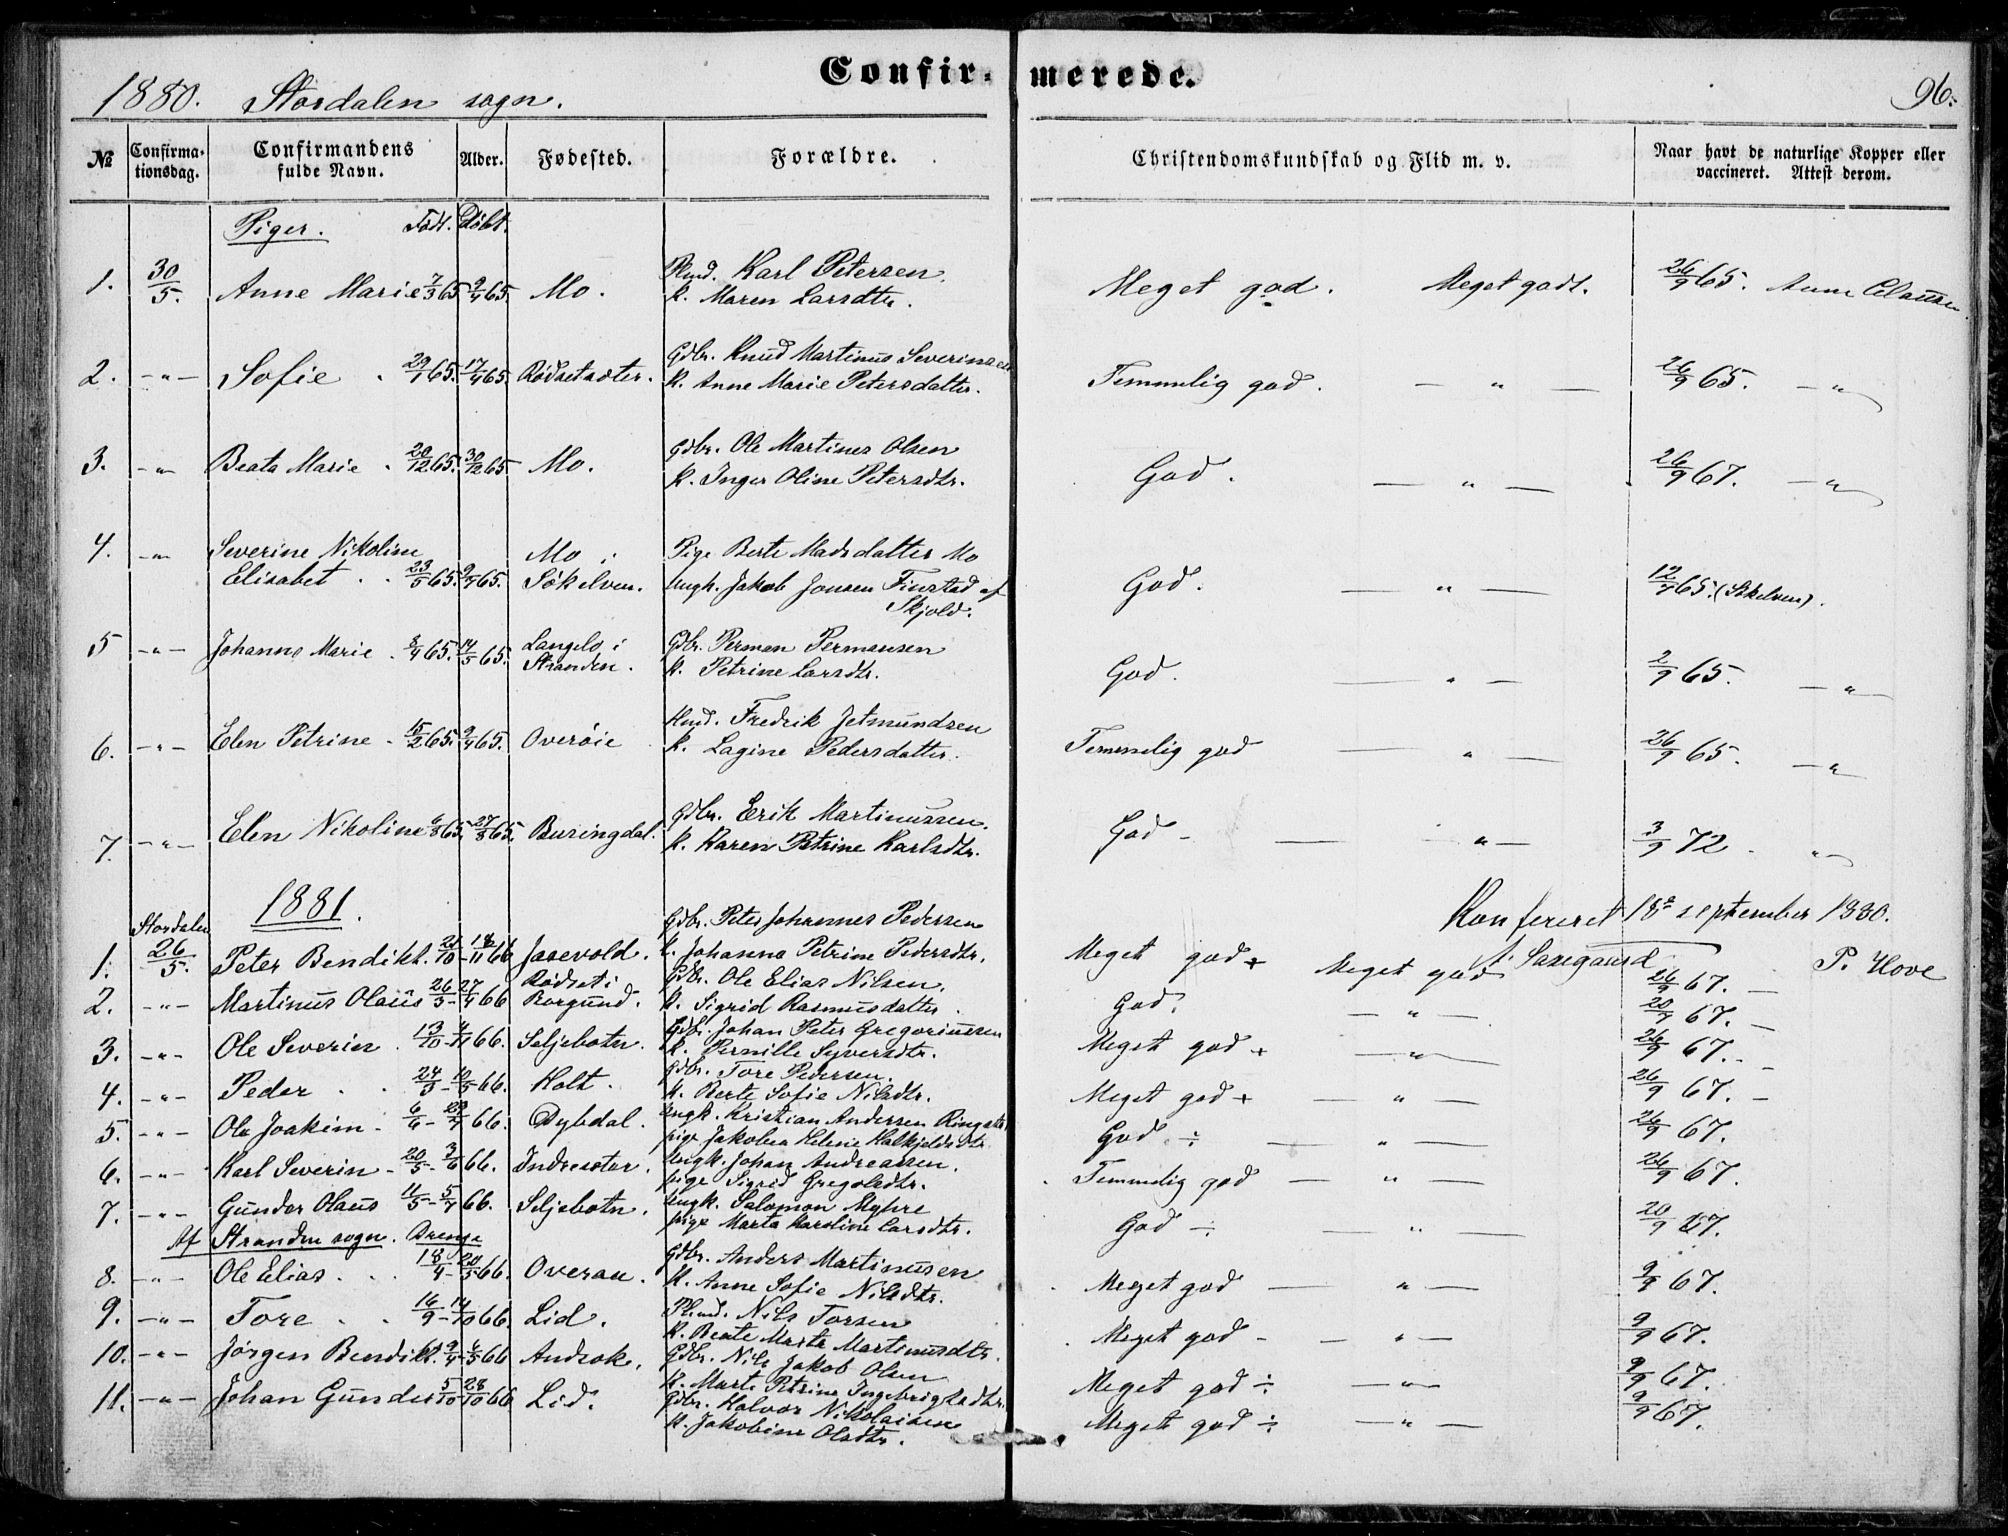 Confirmerede.
1880. Stordalen sogn.
96.
№ Confirmationsdag. Confirmandens fulde Navn. Alder. Fødested. Forældre. Christendomskundskab og Flid m. v. Naar havt de naturlige Kopper eller vaccineret. Attest derom.
Piger. Født. Døbt.
1. 30/5. Anne Marie 7/3 65 9/4 65. Mo. Plmd. Karl Petersen. Meget god. Meget godt. 26/9 65. Anne Clausen
k. Maren Larsdtr.
2. -"- Sofie 29/1 65. 17/4 65. Rødsetsæter. Gdbr. Knud Martinus Severinsen Temmelig god. — " — 26/9 65. — "
k. Anne Marie Petersdatter.
3. -"- Beate Marie 20/12 65. 30/12 65. Mo. Gdbr. Ole Martinus Olsen God. — " — 26/9 67. — "
k. Inger Oline Petersdtr.
4. -"- Severine Nikoline Mo i Pige Berte Madsdatter Mo
Elisabet 23/5 65. 9/7 65. Søkelven. Ungk. Jakob Jonsen Finstad af God. — " — 12/9 65. (Søkelven).
Skjold.
5 -"- Johanne Marie 8/4 65. 14/5 65. Langelo i Gdbr. Perman Permansen God. — " — 2/9 65. — "
Stranden. k. Petrine Larsdtr.
6. -"- Elen Petrine 15/2 65. 9/4 65. Overøie Hmd. Fredrik Jetmundsen Temmelig god — " — 26/9 65. — "
k. Lagine Pedersdatter.
7. -"- Elen Nikoline 6/8 65. 27/8 65. Busingdal. Gdbr. Erik Martinussen. God — " — 3/9 72. "
k. Karen Petrine Karlsdtr.
1881. Konfereret 18de september 1880.
Saxegaard
Stordalen Gdbr. Peter Johannes Pedersen
1. 26/5. Peter Bendikt. 21/10 - 18/11 66 Jasevold. k. Johanna Petrine Pedersdtr. Meget god + Meget god 26/9 67. — P. Hove
2. -"- Martinus Olaus 26/3 - 27/4 66 Rødset i Borgund. Gdbr. Ole Elias Nilsen. God. — " — 20/9 67. —
k. Sigrid Rasmusdatter.
3. -"- Ole Severin. 13/10 - 4/11 66. Seljebotn. Gdbr. Johan Peter Gregoriussen Meget god + — " — 26/9 67. —
k. Pernille Syversdtr.
4. -"- Peder 24/3 - 10/5 66. Holt. Gdbr. Tore Pedersen. Meget god + — " — 26/9 67. —
k. Berte Sofie Nilsdtr.
5. -"- Ole Joakim 6/6 - 29/7 66. Dybdal. Ungk. Kristian Andersen Ringset God ÷ — " — 26/9 67.
pige Jakobea Helene Halkjelsdtr.
6. -"- Karl Severin 20/5 - 3/6 66. Indresæter. Ungk. Johan Andreassen. Temmelig god — " — 26/9 67.
pige Sigrid Gregoledtr.
7. -"- Gunder Olaus 11/5 - 5/7 66. Seljebotn. Ungk. Salomon Myhre God ÷ " 20/9 67.
pige Marta Karoline Larsdtr.
Af Stranden sogn. Drenge
8. -"- Ole Elias. 18/4 - 20/5 66. Overaa. Gdbr. Anders Martinusen Meget god — " — 9/9 67.
k. Anne Sofie Nilsdtr.
9. -"- Tore 16/9 - 14/10 66. Lid. Plmd. Nils Torsen Meget god — " — 9/9 67.
k. Beate Marta Martinusdtr.
10. -"- Jørgen Bendikt. 9/4 - 6/5 66 Andsok. Gdbr. Nils Jakob Olsen Meget god ÷ — " — 9/9 67.
k. Marte Petrine Ingebrigtsdtr.
11. -"- Johan Gunder 5/10 - 28/10 66 Lid. Gdbr. Halvor Nikolaisen Meget god ÷ — " — 9/9 67.
k. Jakobine Olsdtr.